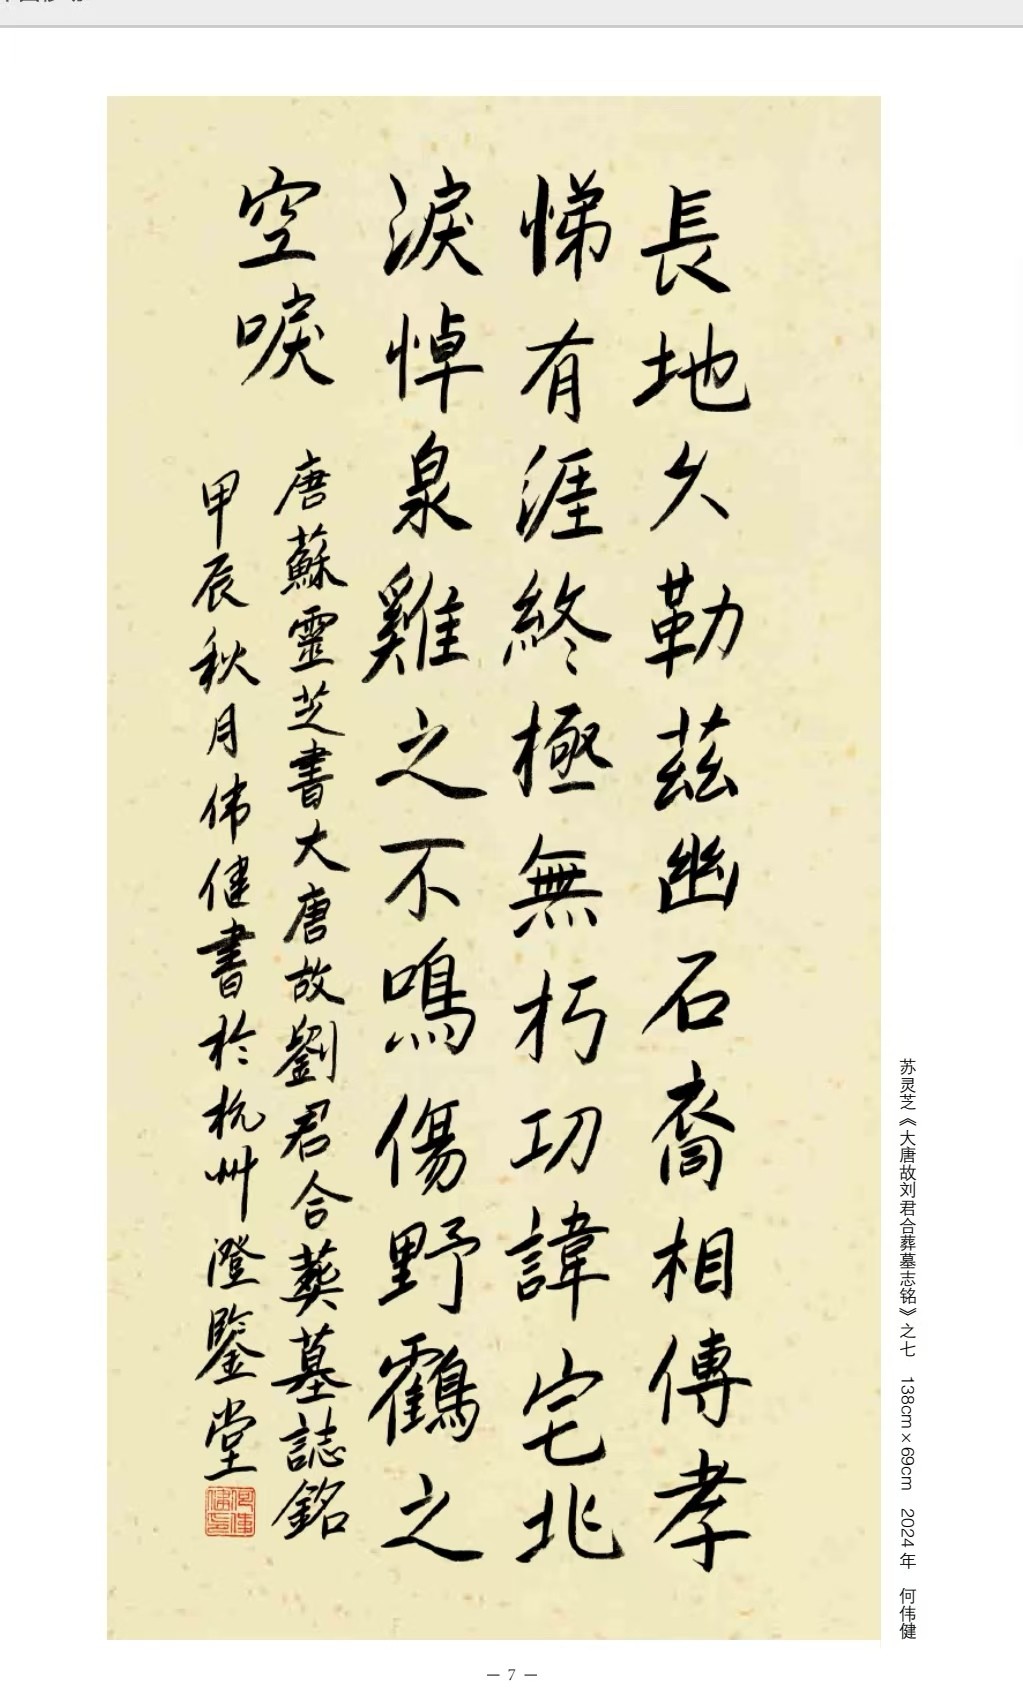 長地久勒茲幽石裔相傳孝
悌有涯終極無朽功諱宅北
淚悼泉雞之不鳴傷野鶴之
空唳
唐蘇靈芝書大唐故劉君合葬墓誌銘
甲辰秋月伟健書於杭州澄鑒堂
苏灵芝《大唐故刘君合葬墓志铭》之七 138cm×69cm 2024年 何伟健
— 7 —